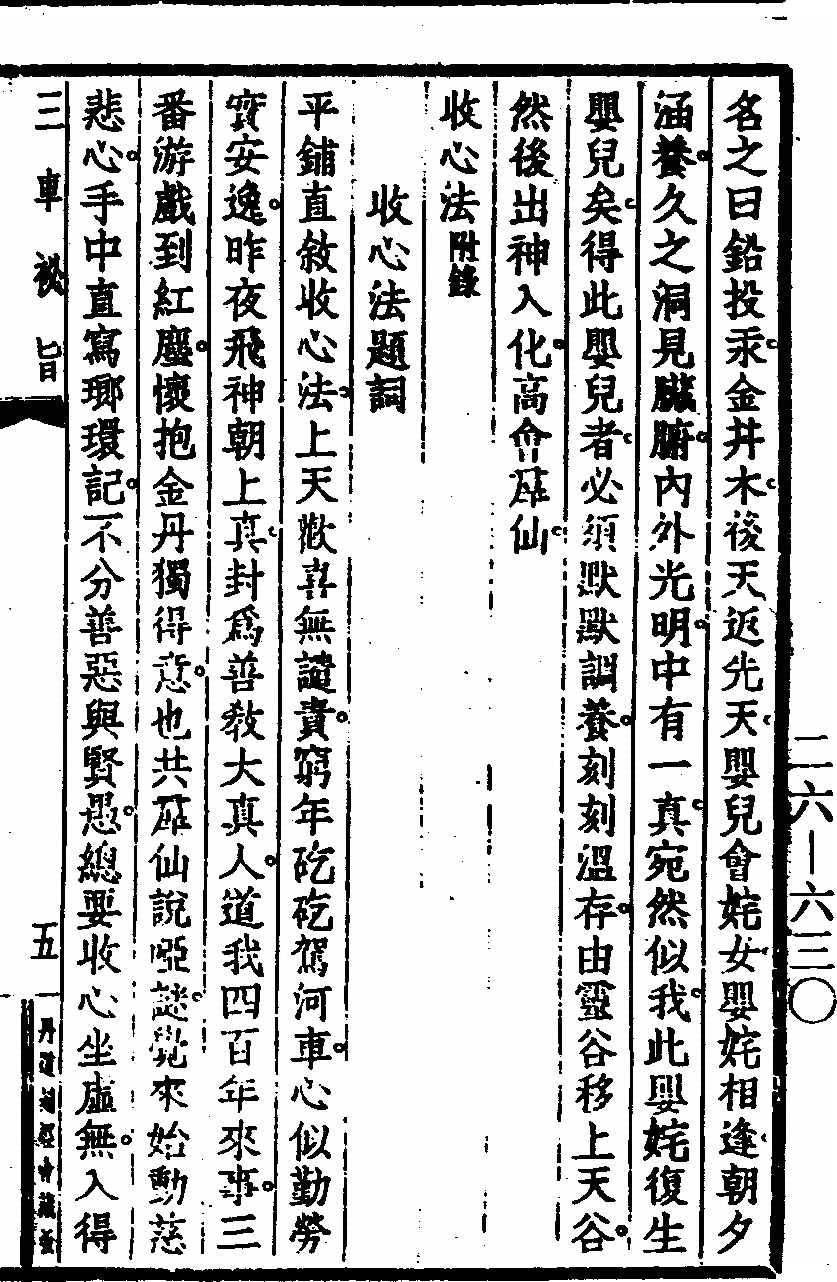 名之曰鉛投汞金并木後天返先天嬰兒會姹女嬰姹相逢朝夕
涵養久之洞見臟腑內外光明中有一真宛然似我此嬰姹復生
嬰兒矣得此嬰兒者必須默默調養刻刻溫存由靈谷移上天谷
然後出神入化高會羣仙
收心法附錄
收心法題詞
平鋪直敘收心法上天歡喜無譴責窮年矻矻駕河車心似勤勞
實安逸昨夜飛神朝上真封為善教大真人道我四百年來事三
番游戲到紅塵懷抱金丹獨得意也共羣仙說啞謎覺來始動慈
悲心手中直寫瑯環記不分善惡與賢愚總要收心坐虛無入得
三車祕旨
五
二六—六三〇